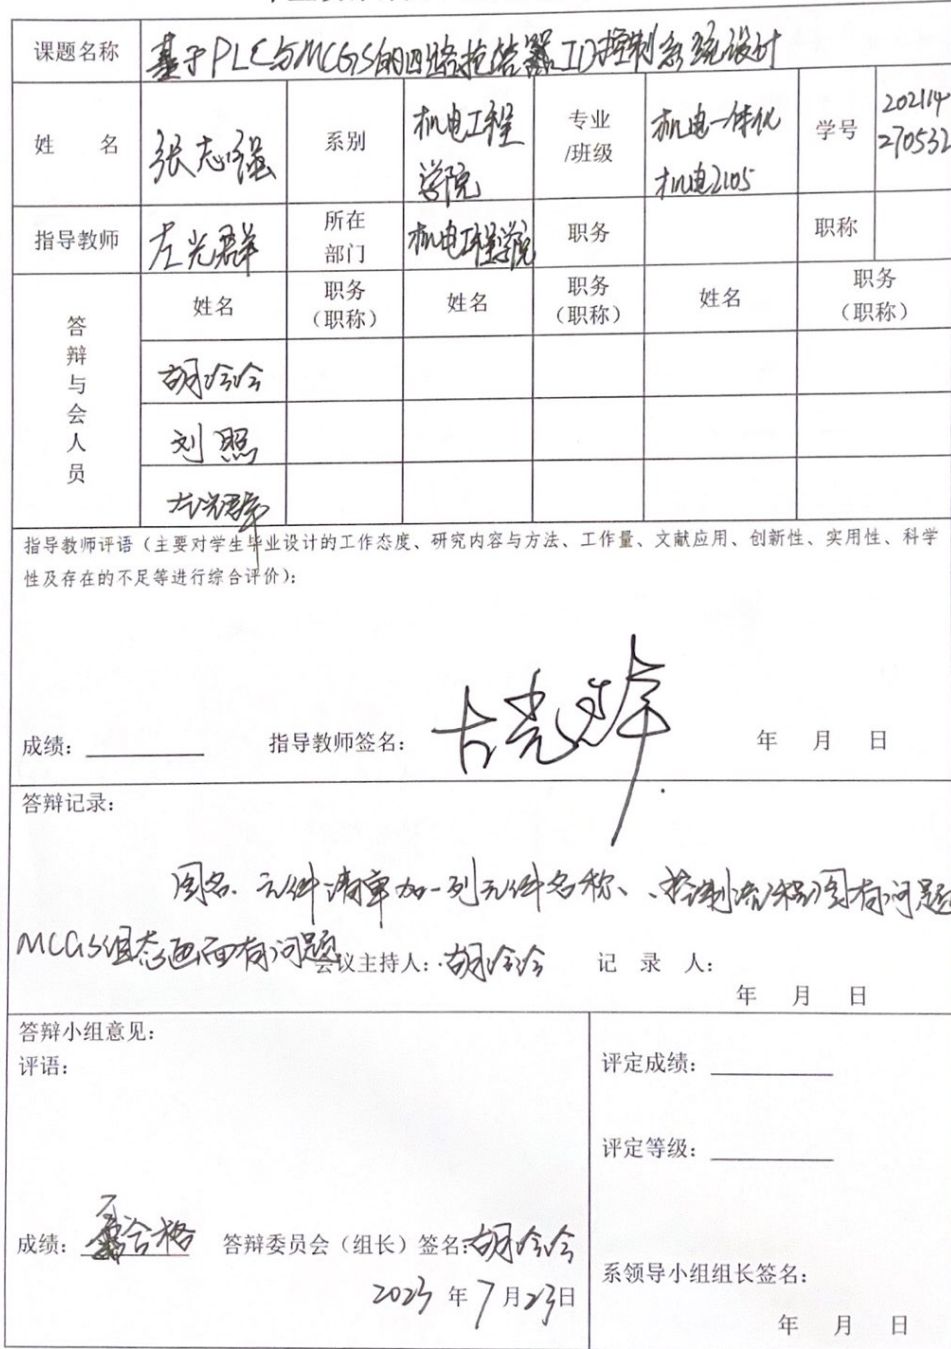 课题名称 基于PLC与MCGS的四路抢答器TD控制系统设计
姓 名 张志强 系别 机电工程学院 专业/班级 机电一体化 机电2105 学号 202114270532
指导教师 左光群 所在部门 机电工程学院 职务 职称
答辩与会人员 姓名 职务（职称） 姓名 职务（职称） 姓名 职务（职称）
胡冷冷
刘照
左光群
指导教师评语（主要对学生毕业设计的工作态度、研究内容与方法、工作量、文献应用、创新性、实用性、科学
性及存在的不足等进行综合评价）：
成绩： 指导教师签名： 左光群 年 月 日
答辩记录：
图名、元件清单加一列元件名称、控制流程图有问题
MCGS组态画面有问题 会议主持人：胡冷冷 记 录 人：
年 月 日
答辩小组意见：
评语：
评定成绩：
评定等级：
成绩： 不合格 答辩委员会（组长）签名：胡冷冷
2023 年 7 月 23日
系领导小组组长签名：
年 月 日